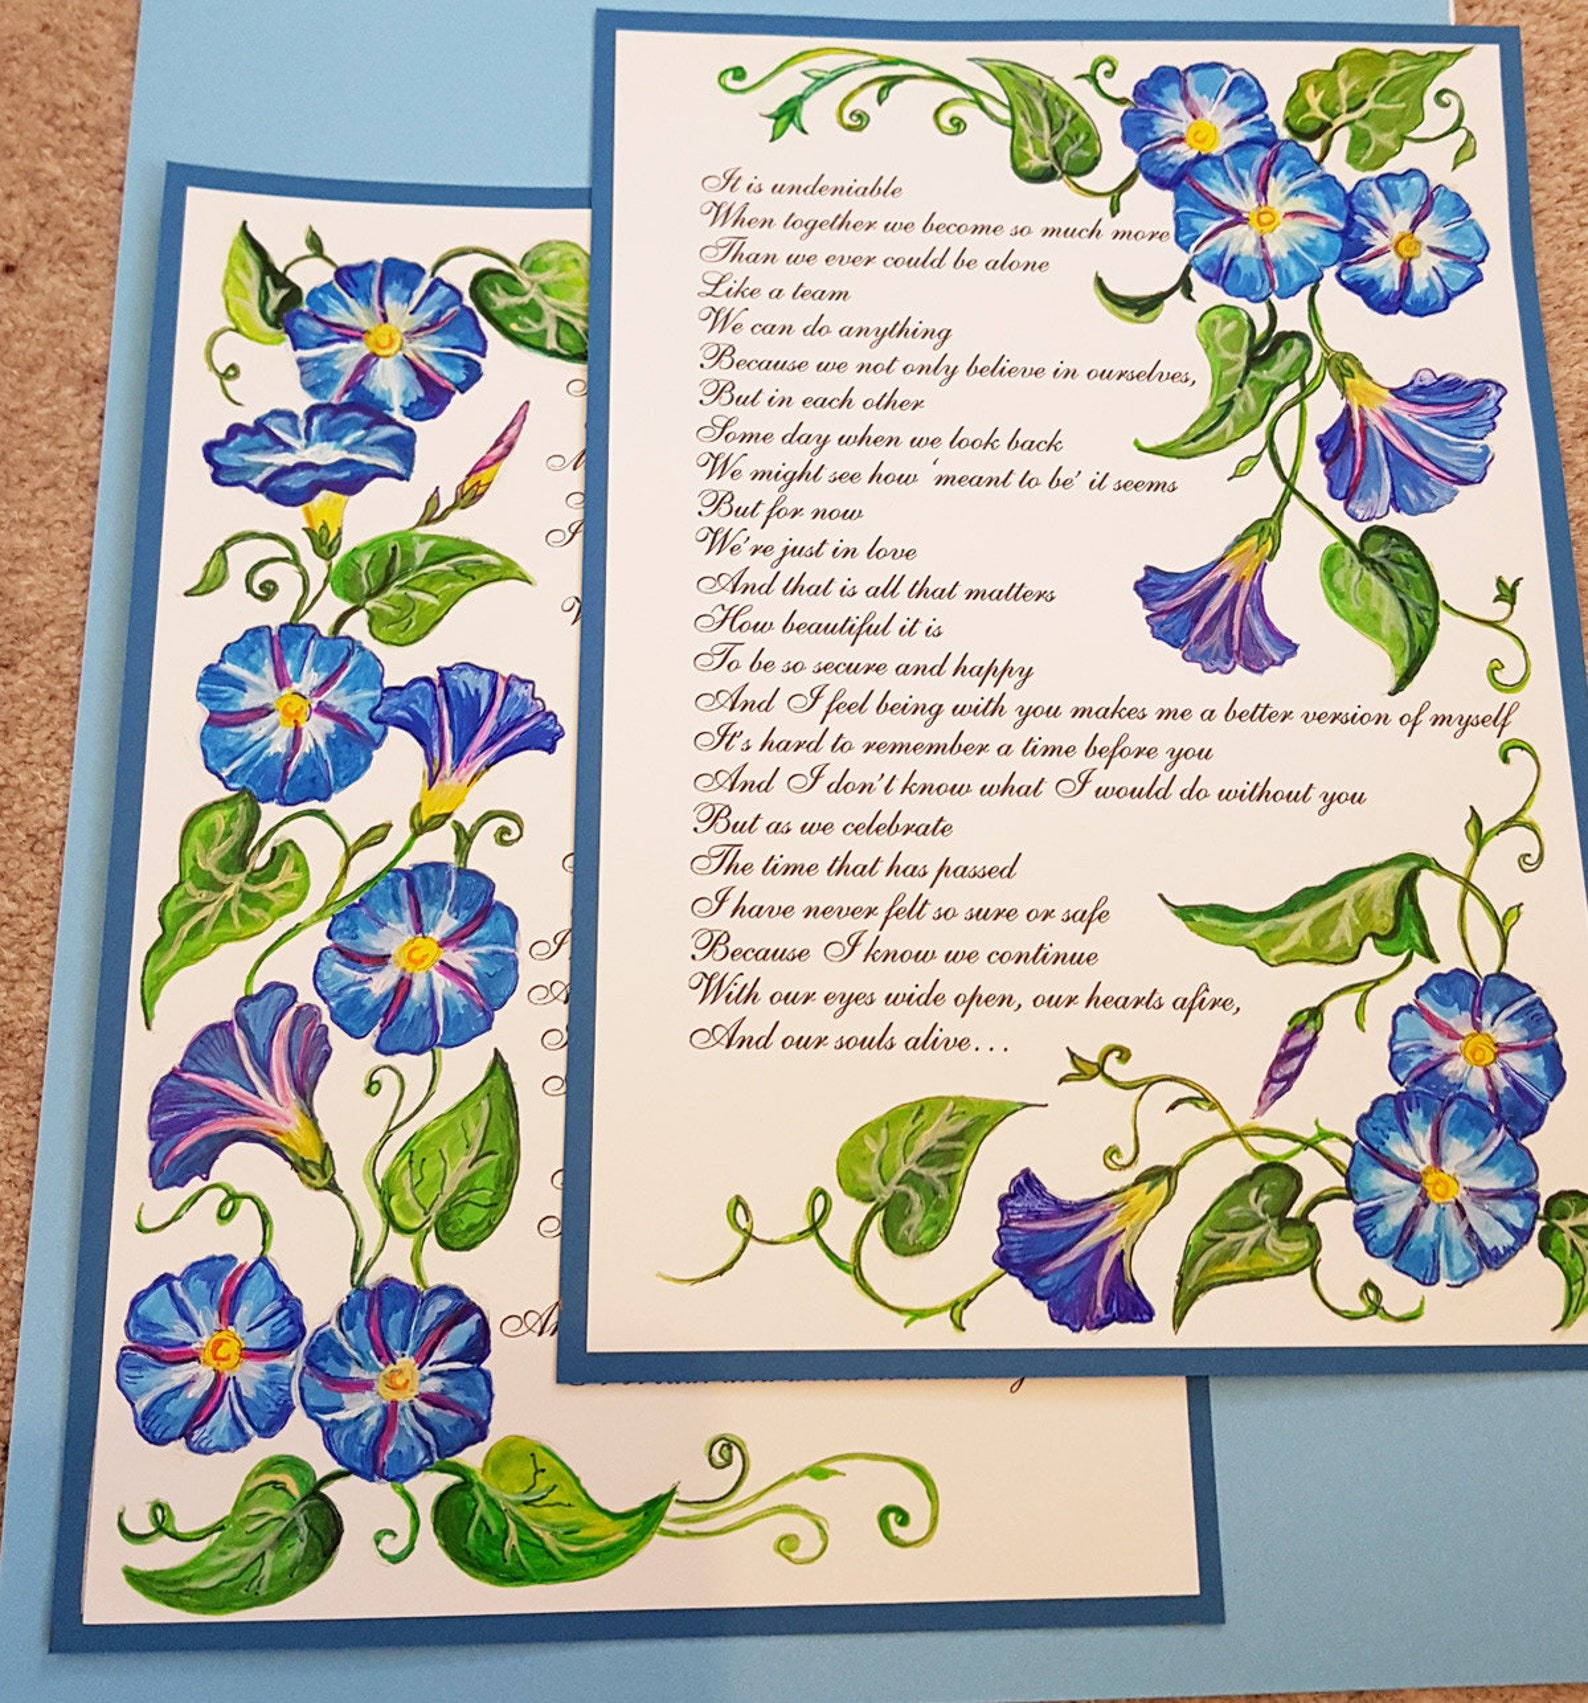 It is undeniable
When together we become so much more
Than we ever could be alone
Like a team
We can do anything
Because we not only believe in ourselves,
But in each other
Some day when we look back
We might see how ‘meant to be’ it seems
But for now
We're just in love
And that is all that matters
How beautiful it is
To be so secure and happy
And I feel being with you makes me a better version of myself
It's hard to remember a time before you
And I don't know what I would do without you
But as we celebrate
The time that has passed
I have never felt so sure or safe
Because I know we continue
With our eyes wide open, our hearts afire,
And our souls alive...